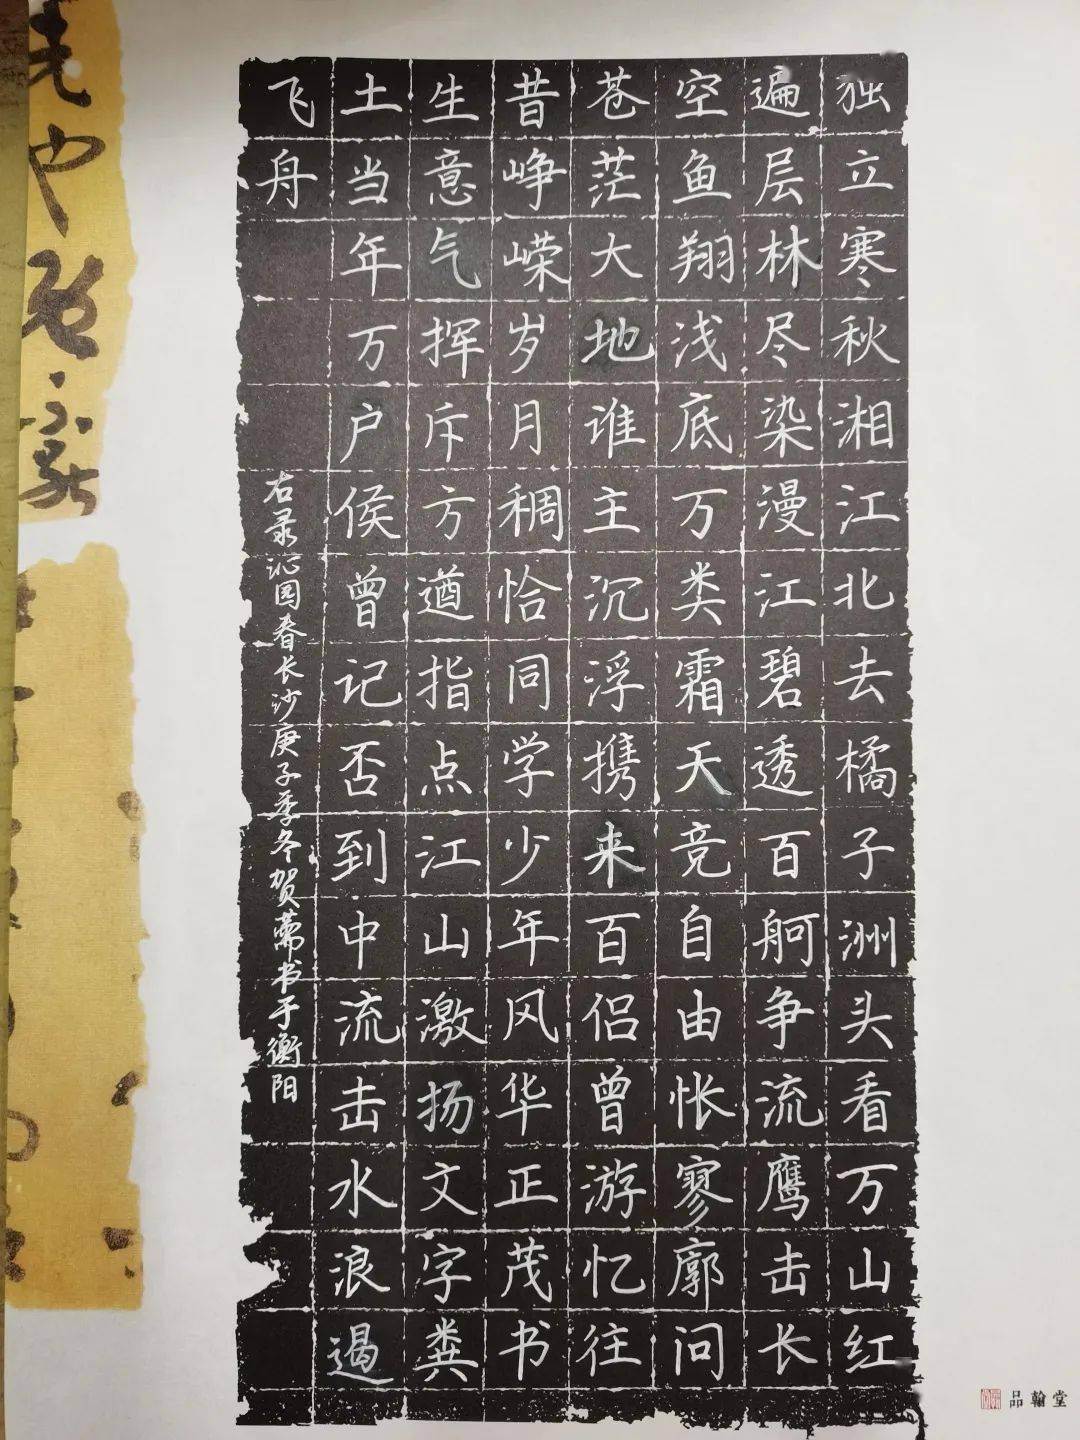 独立寒秋湘江北去橘子洲头看万山红
遍层林尽染漫江碧透百舸争流鹰击长
空鱼翔浅底万类霜天竞自由怅寥廓问
苍茫大地谁主沉浮携来百侣曾游忆往
昔峥嵘岁月稠恰同学少年风华正茂书
生意气挥斥方遒指点江山激扬文字粪
土当年万户侯曾记否到中流击水浪遏
飞舟
右录沁园春长沙庚子季冬贺书于衡阳
品翰堂